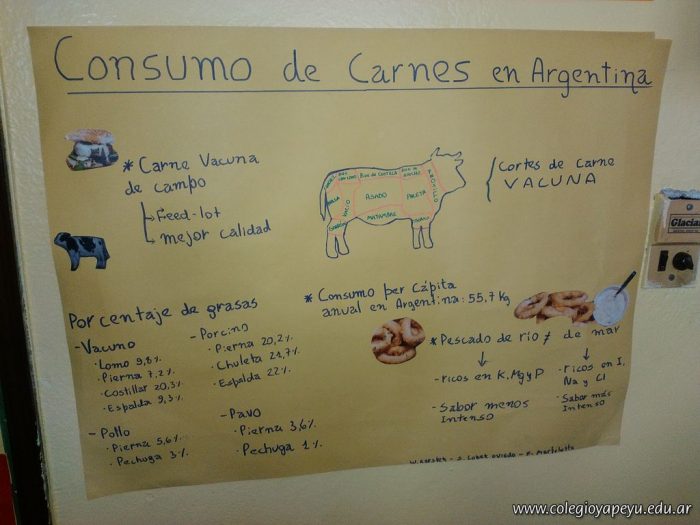 Consumo de Carnes en Argentina
* Carne Vacuna
de campo
Feed-lot
mejor calidad
BIFE DE COSTILLA
ASADO
PALETA
VACIO
MATAMBRE
Cortes de Carne
VACUNA
* Consumo per Cápita
anual en Argentina: 55,7 Kg
Porcentaje de grasas
- Vacuno
· Lomo 9,8%
· Pierna 7,2%
· Costillar 20,3%
· Espalda 9,3%
- Porcino
· Pierna 20,2%
· Chuleta 21,7%
· Espalda 22%
- Pollo
· Pierna 5,6%
· Pechuga 3%
- Pavo
· Pierna 3,6%
· Pechuga 1%
* Pescado de río ≠ de mar
- ricos en K, Mg y P
- Sabor menos
Intenso
- ricos en I,
Na y Cl
- Sabor más
Intenso
Glacial
www.colegioyapeyu.edu.ar